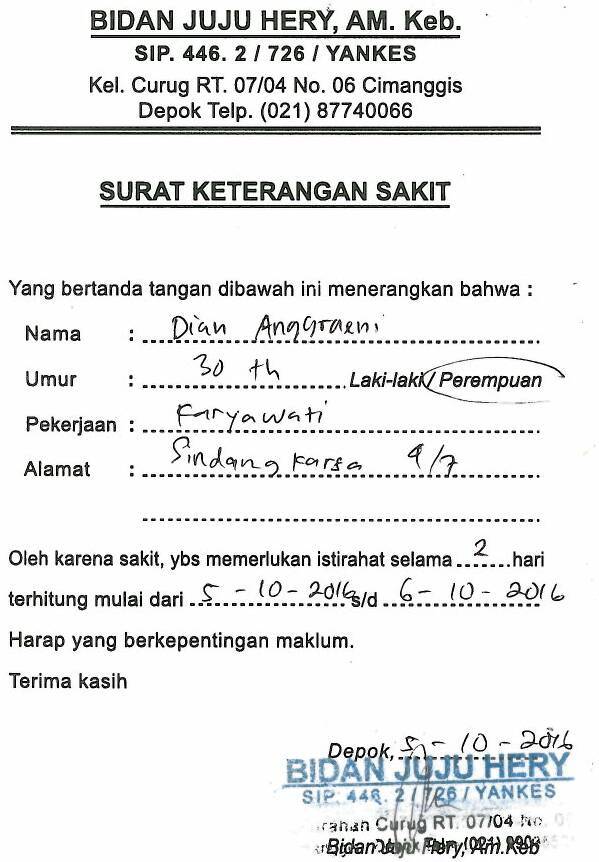 BIDAN JUJU HERY, AM. Keb.
SIP. 446. 2 / 726 / YANKES
Kel. Curug RT. 07/04 No. 06 Cimanggis
Depok Telp. (021) 87740066
SURAT KETERANGAN SAKIT
Yang bertanda tangan dibawah ini menerangkan bahwa :
Nama : Dian Anggraeni
Umur : 30 th Laki-laki / Perempuan
Pekerjaan : Karyawati
Alamat : Sindang Karsa 4/7
Oleh karena sakit, ybs memerlukan istirahat selama 2 hari
terhitung mulai dari 5 - 10 - 2016 s/d 6 - 10 - 2016
Harap yang berkepentingan maklum.
Terima kasih
Depok, 5 - 10 - 2016
BIDAN JUJU HERY
SIP. 446. 2 / 726 / YANKES
Curug RT. 07/04 No.
Bidan Juju Hery, Am.Keb